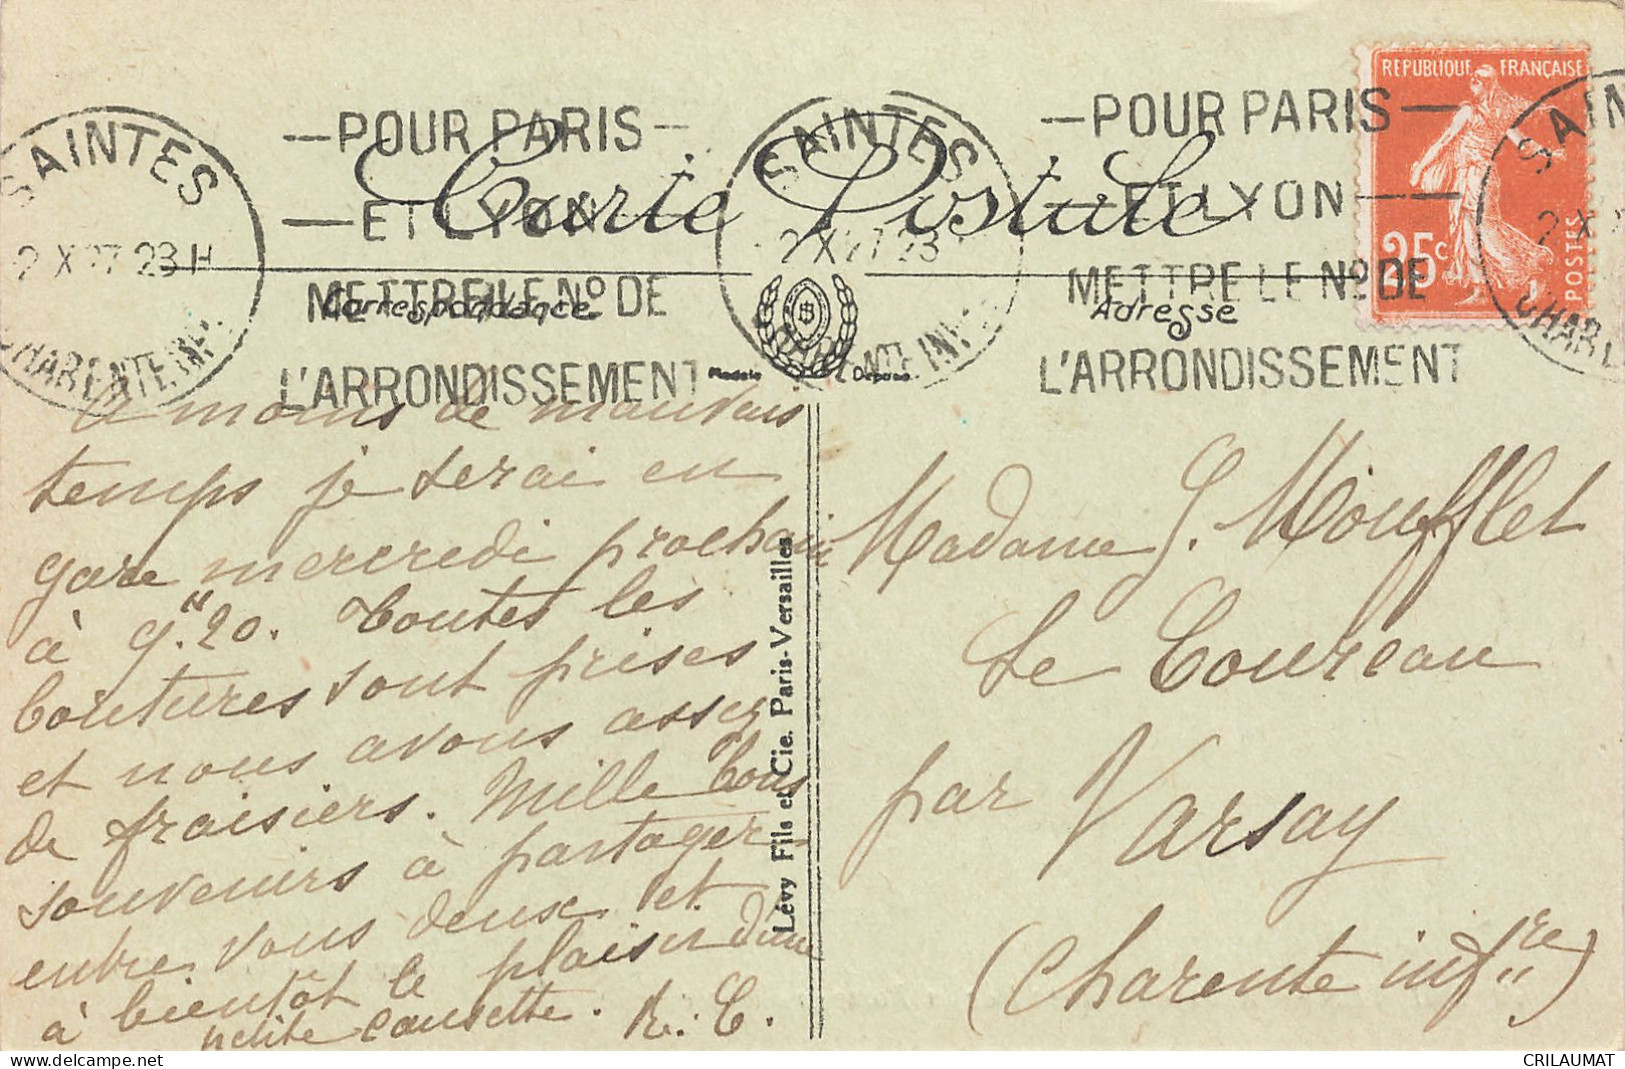 SAINTES
2 X 27 23 H
CHARENTE INF.
— POUR PARIS —
— ET LYON
METTRE LE No DE
L'ARRONDISSEMENT
SAINTES
2 X 27 23
CHARENTE INF.
— POUR PARIS —
— ET LYON —
METTRE LE No DE
L'ARRONDISSEMENT
REPUBLIQUE FRANÇAISE
25c
POSTES
SAIN
2 X 2
CHARE
Carte Postale
Correspondance
Adresse
Modele Déposé
A moins de mauvais
temps je serai en
gare mercredi prochain
à 9.H 20. Toutes les
boutures sont prises
et nous avons assez
de fraisiers. Mille bons
souvenirs à partager
entre vous deux et
à bientôt le plaisir d'une
petite causette. R. C.
Lévy Fils et Cie. Paris-Versailles
Madame G. Moufflet
Le Coureau
par Varsay
(Charente infre)
CRILAUMAT